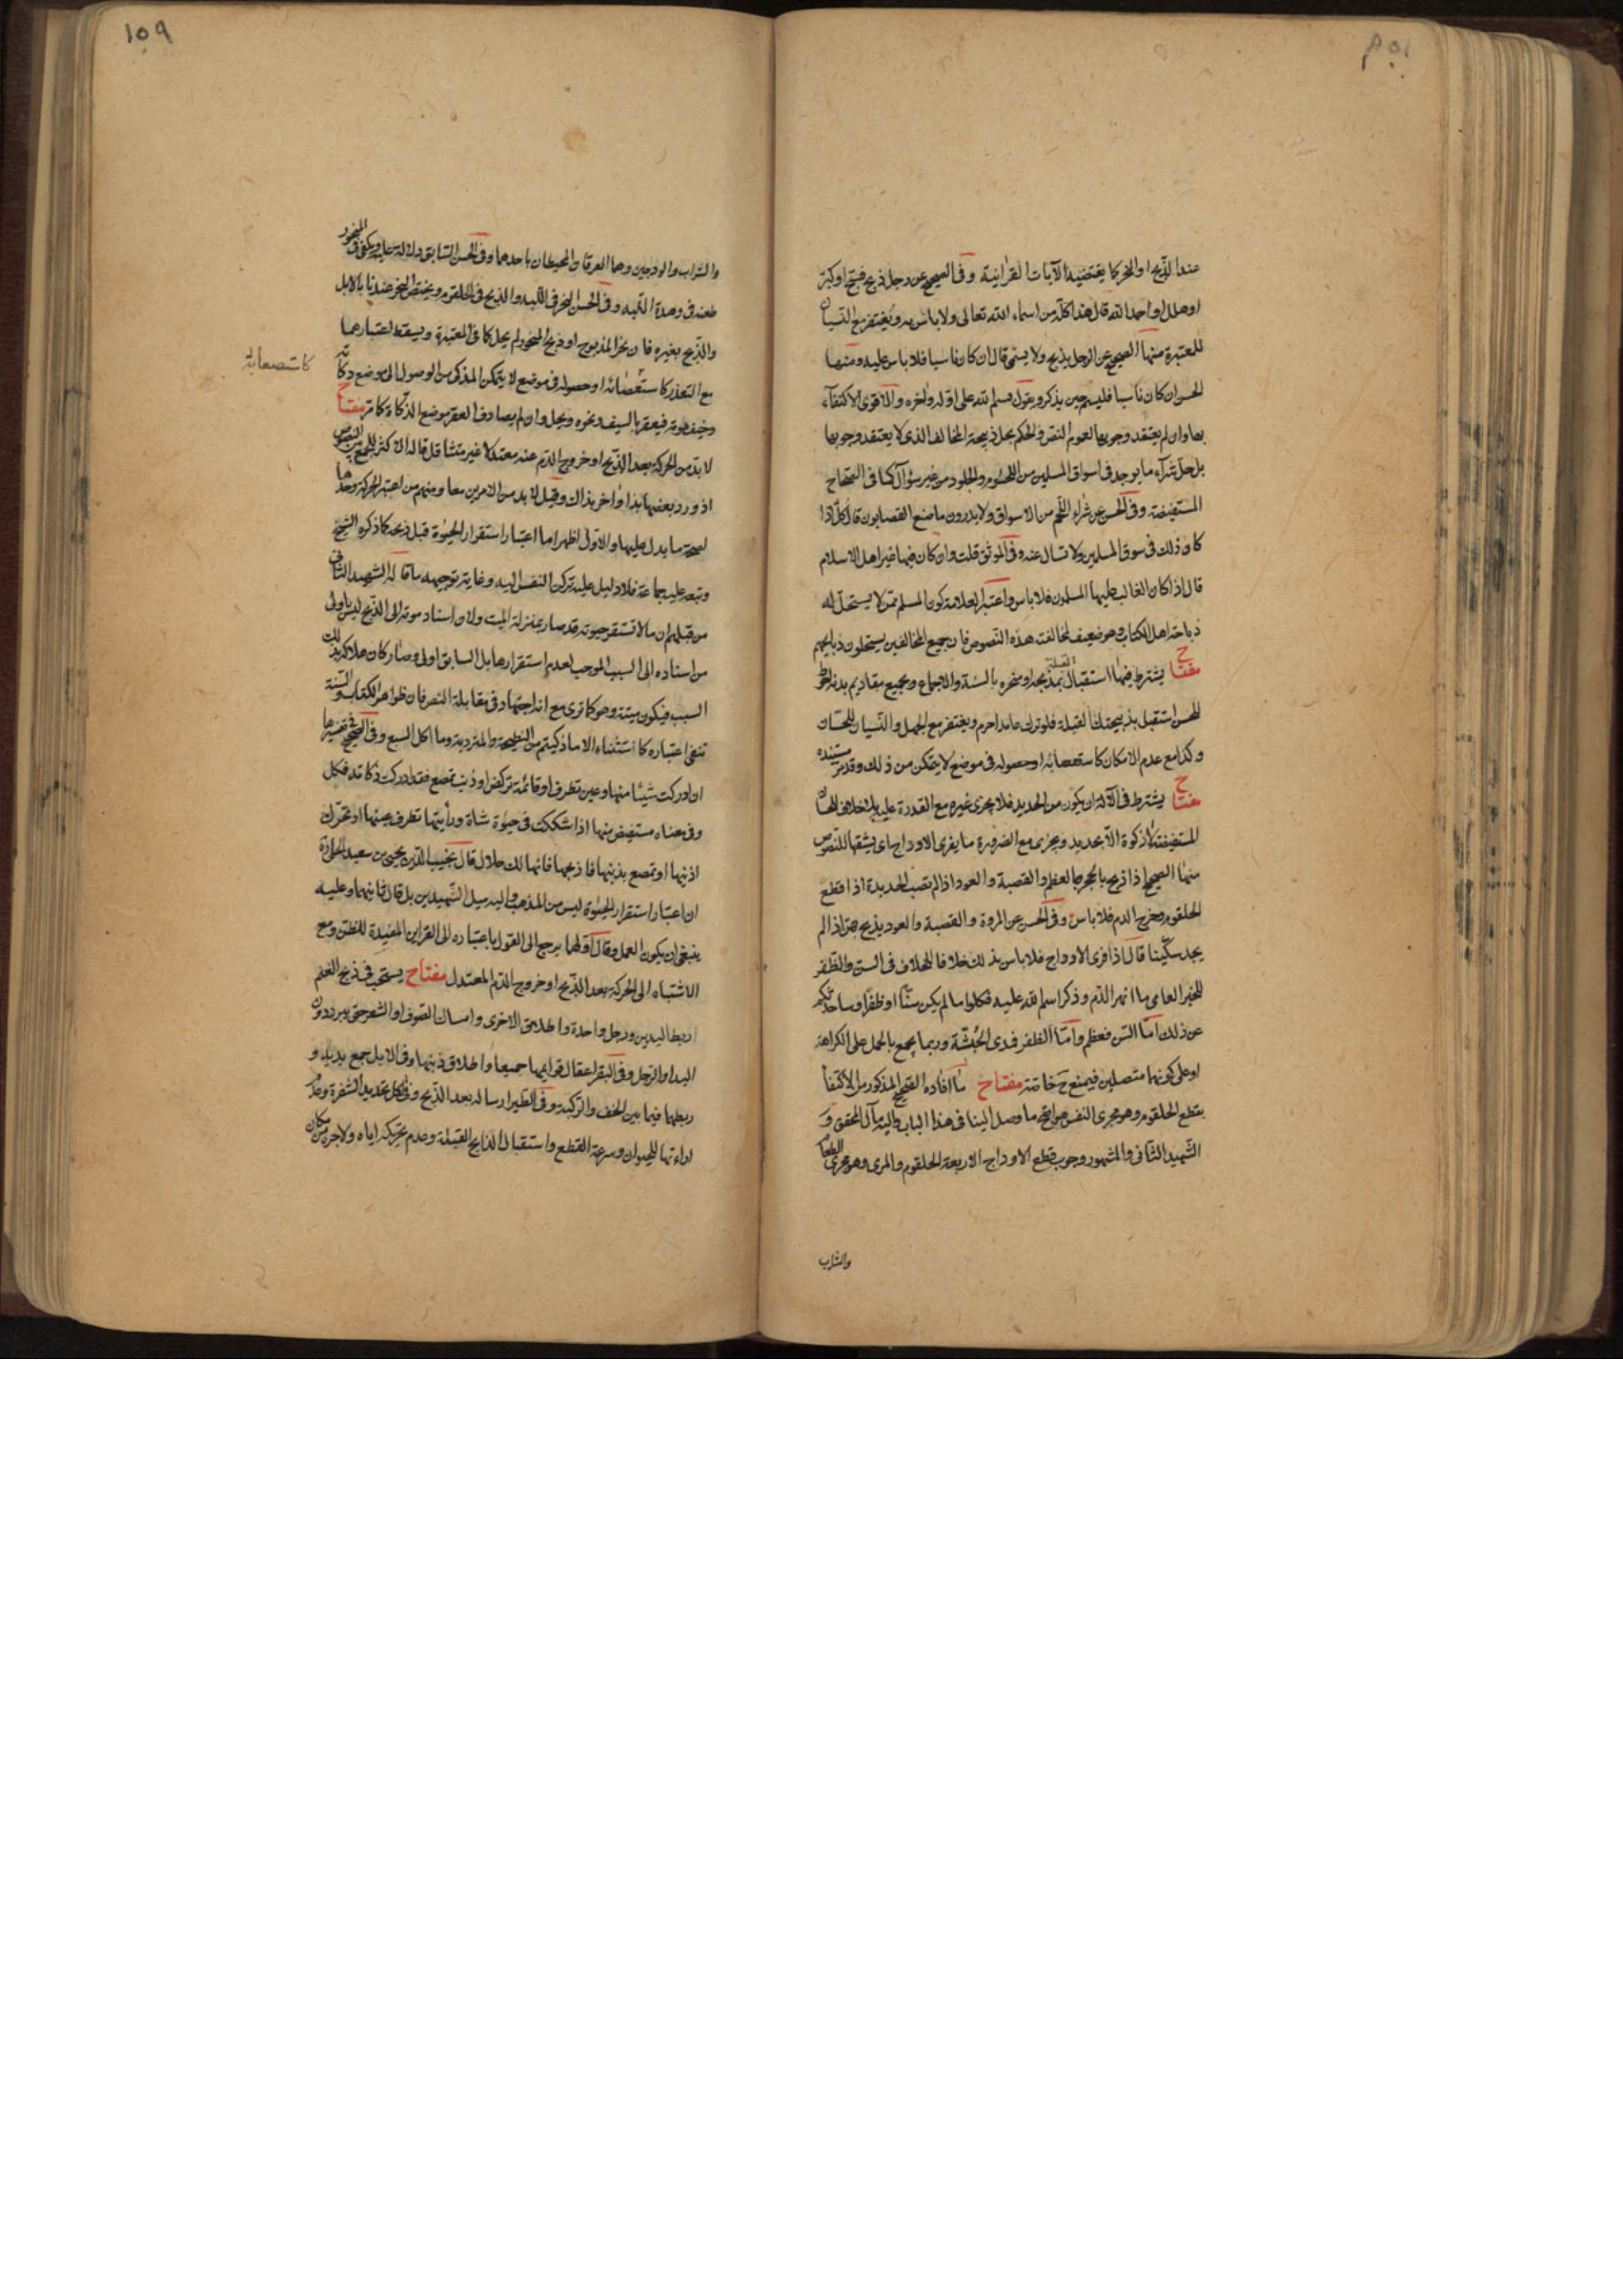 عند الذبح او النحر كما يقتضيه الآيات القرآنية وفى الصحيح عن رجل ذبح فسبح او كبر
او هلل او حمد الله قال هذا كله من اسماء الله تعالى ولا باس به ويغتفر مع النسيان
للمعتبرة منها الصحيح عن الرجل يذبح ولا يسمى قال ان كان ناسيا فلا باس عليه ومنها
الحسن ان كان ناسيا فليسم حين يذكر ويقول بسم الله على اوله واخره والاقوى الاكتفاء
بها وان لم يعتقد وجوبها لعموم النص والحكم بحل ذبيحة المخالف الذى لا يعتقد وجوبها
بل حل شراء ما يوجد فى اسواق المسلمين من اللحوم والجلود من غير سؤال كما فى الصحاح
المستفيضة وفى الحسن عن شراء اللحم من الاسواق ولا يدرون ما صنع القصابون قال كل اذا
كان ذلك فى سوق المسلمين ولا تسال عنه وفى الموثق قلت وان كان فيها غير اهل الاسلام
قال اذا كان الغالب عليها المسلمون فلا باس واعتبر العلامة كون المسلم ممن لا يستحل له
ذباحة اهل الكتاب وهو ضعيف لمخالفته هذه النصوص فان جميع المخالفين يستحلون ذبايحهم
مفتاح يشترط فيهما استقبال القبلة بمذبحه او منحره بالسنة والاجماع وبجميع مقاديم بدنه احوط
للحسن استقبل بذبيحتك القبلة فلو ترك عامدا حرم ويغتفر مع الجهل والنسيان للحسان
وكذا مع عدم الامكان كاستعصائه او حصوله فى موضع لا يتمكن من ذلك وقد مر مستنده
مفتاح يشترط فى الآلة ان يكون من الحديد فلا يجزى غيره مع القدرة عليه بلا خلاف للحسان
المستفيضة لا ذكوة الا بحديد ويجزى مع الضرورة ما يفرى الاوداج اى يشقها للنصوص
منها الصحيح اذا ذبح بالحجر والعظم والقصبة والعود اذا لم تصب الحديدة اذا قطع
الحلقوم وخرج الدم فلا باس وفى الحسن عن المروة والقصبة والعود يذبح بهن اذا لم
يجد سكينا قال اذا فرى الاوداج فلا باس بذلك خلافا للخلاف فى السن والظفر
للخبر العامى ما انهر الدم وذكر اسم الله عليه فكلوا ما لم يكن سنا او ظفرا وساحدثكم
عن ذلك اما السن فعظم واما الظفر فمدى الحبشة وربما يجمع بالحمل على الكراهة
او على كونهما متصلين فيمنع ح خاصة مفتاح ما افاده الصحيح المذكور من الاكتفأ
بقطع الحلقوم وهو مجرى النفس هو اصح ما وصل الينا فى هذا الباب واليه مال المحقق و
الشهيد الثانى والمشهور وجوب قطع الاوداج الاربعة الحلقوم والمرى وهو مجرى الطعام
والشراب
والشراب والودجين وهما العرقان المحيطان باحدهما وفى الحسن السابق دلالة عليه ويكفى فى المنحور
طعنه فى وهدة اللبه وفى الحسن النحر فى اللبه والذبح فى الحلقوم ويختص النحر عندنا بالابل
والذبح بغيره فان نحر المذبوح او ذبح المنحور لم يحل كما فى المعتبرة ويسقط اعتبارهما
مع التعذر كاستعصائه او حصوله فى موضع لا يتمكن المذكى من الوصول الى موضع ذكاته
كاستصعابه
وخيف فوته فيعقر بالسيف ونحوه ويحل وان لم يصادف العقر موضع الذكاة كما مر مفتاح
لا بد من الحركة بعد الذبح او خروج الدم عنه معتدلا غير متثاقل قاله الاكثر للجمع بين النصوص
اذ ورد بعضها بهذا واخر بذاك وقيل لا بد من الامرين معا ومنهم من اعتبر الحركة وحدها
لصحة ما يدل عليها والاول اظهر اما اعتبار استقرار الحيوة قبل ذبحه كما ذكره الشيخ
وتبعه عليه جماعة فلا دليل عليه تركن النفس اليه وغاية توجيهه ما قاله الشهيد الثانى
من قبلهم ان ما لا تستقر حيوته قد صار بمنزلة الميت ولان اسناد موته الى الذبح ليس باولى
من اسناده الى السبب الموجب لعدم استقرارها بل السابق اولى وصار كان هلاكه بذلك
السبب فيكون ميتة وهو كما ترى مع انه اجتهاد فى مقابلة النص فان ظواهر الكتاب والسنة
تنفى اعتباره كاستثناء الا ما ذكيتم من النطيحة والمتردية وما اكل السبع وفى الصحيح فى تفسيرها
ان ادركت شيئا منها وعين تطرف او قائمة تركض او ذنب تمصع فقد ادركت ذكاته فكل
وفى معناه مستفيض منها اذا شككت فى حيوة شاة ورأيتها تطرف عينها او تحرك
اذنيها او تمصع بذنبها فاذبحها فانها لك حلال قال نجيب الدين يحيى بن سعيد الحلى
ان اعتبار استقرار الحيوة ليس من المذهب واليه ميل الشهيدين بل قال ثانيهما وعليه
ينبغى ان يكون العمل وقال اولهما يرجع الى القول باعتباره الى القراين المفيدة للظن ومع
الاشتباه الى الحركة بعد الذبح او خروج الدم المعتدل مفتاح يستحب فى ذبح الغنم
ربط اليدين ورجل واحدة واطلاق الاخرى وامساك الصوف او الشعر حتى يبرد دون
اليد او الرجل وفى البقر اعقال قوايمها جميعا واطلاق ذنبها وفى الابل جمع يديه و
ربطهما فيما بين الخف والركبة وفى الطير ارساله بعد الذبح وفى الكل تحديد الشفرة وعدم
اراءتها للحيوان وسرعة القطع واستقبال الذابح القبلة وعدم تحريكه اياه ولا جره من مكان